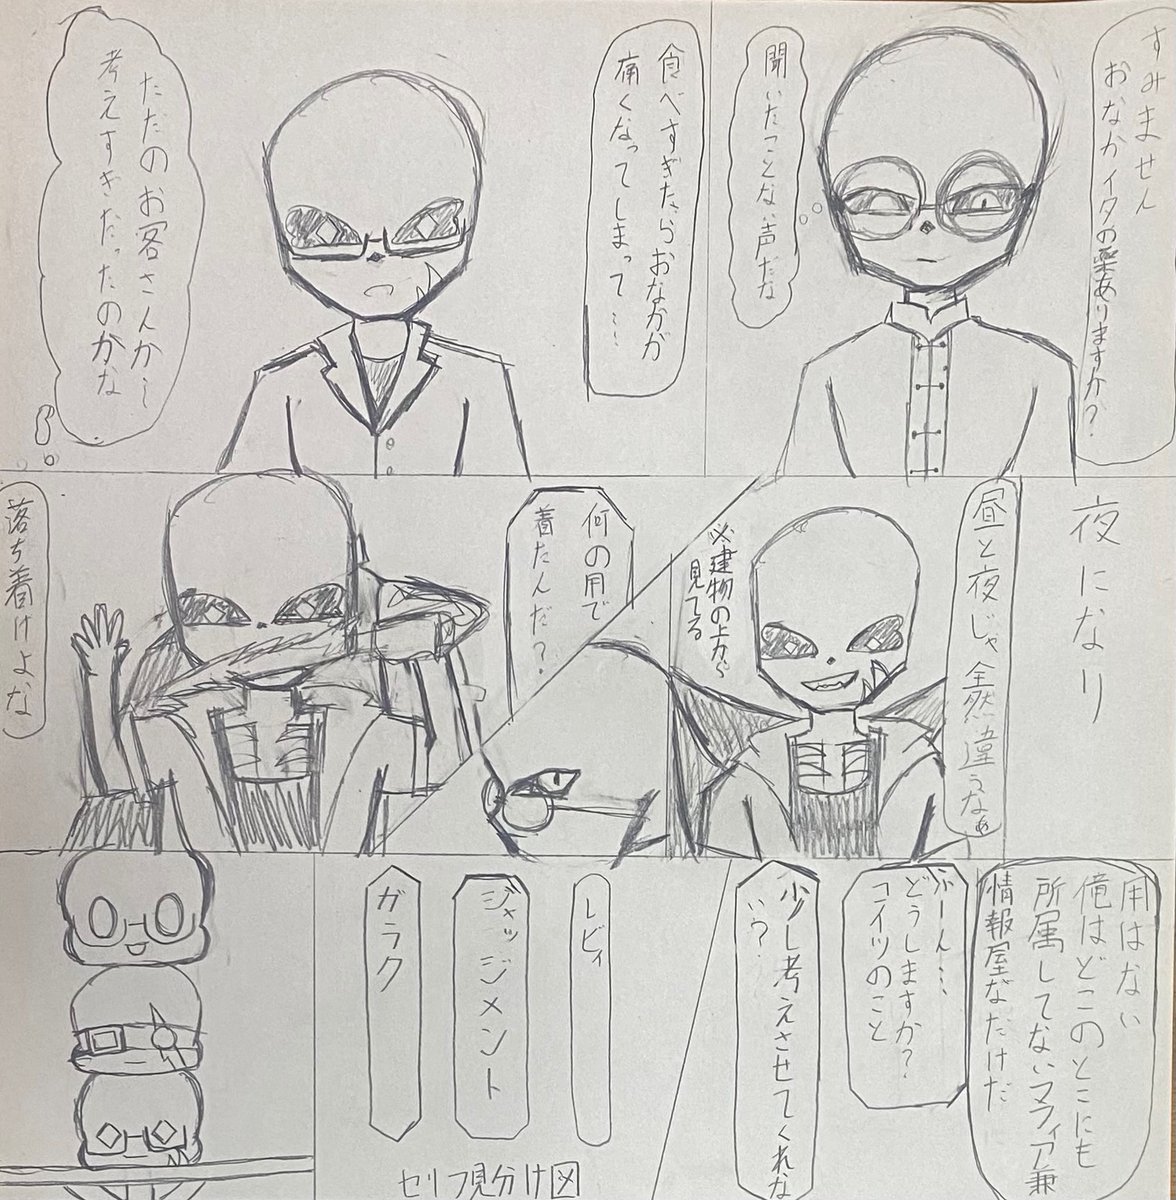 すみません
おなかイタの薬ありますか?
聞いたことない声だな
食べすぎたらおなかが
痛くなってしまって……
ただのお客さんか〜
考えすぎだったのかな
夜になり
昼と夜じゃ全然違うなぁ
※建物の上から
見てる
何の用で
着たんだ?
落ち着けよな
用はない
俺はどこのとこにも
所属してないマフィア兼
情報屋なだけだ
ふーん……
どうしますか?
コイツのこと
少し考えさせてくれな
い?
レビィ
ジャッジメント
ガラク
セリフ見分け図